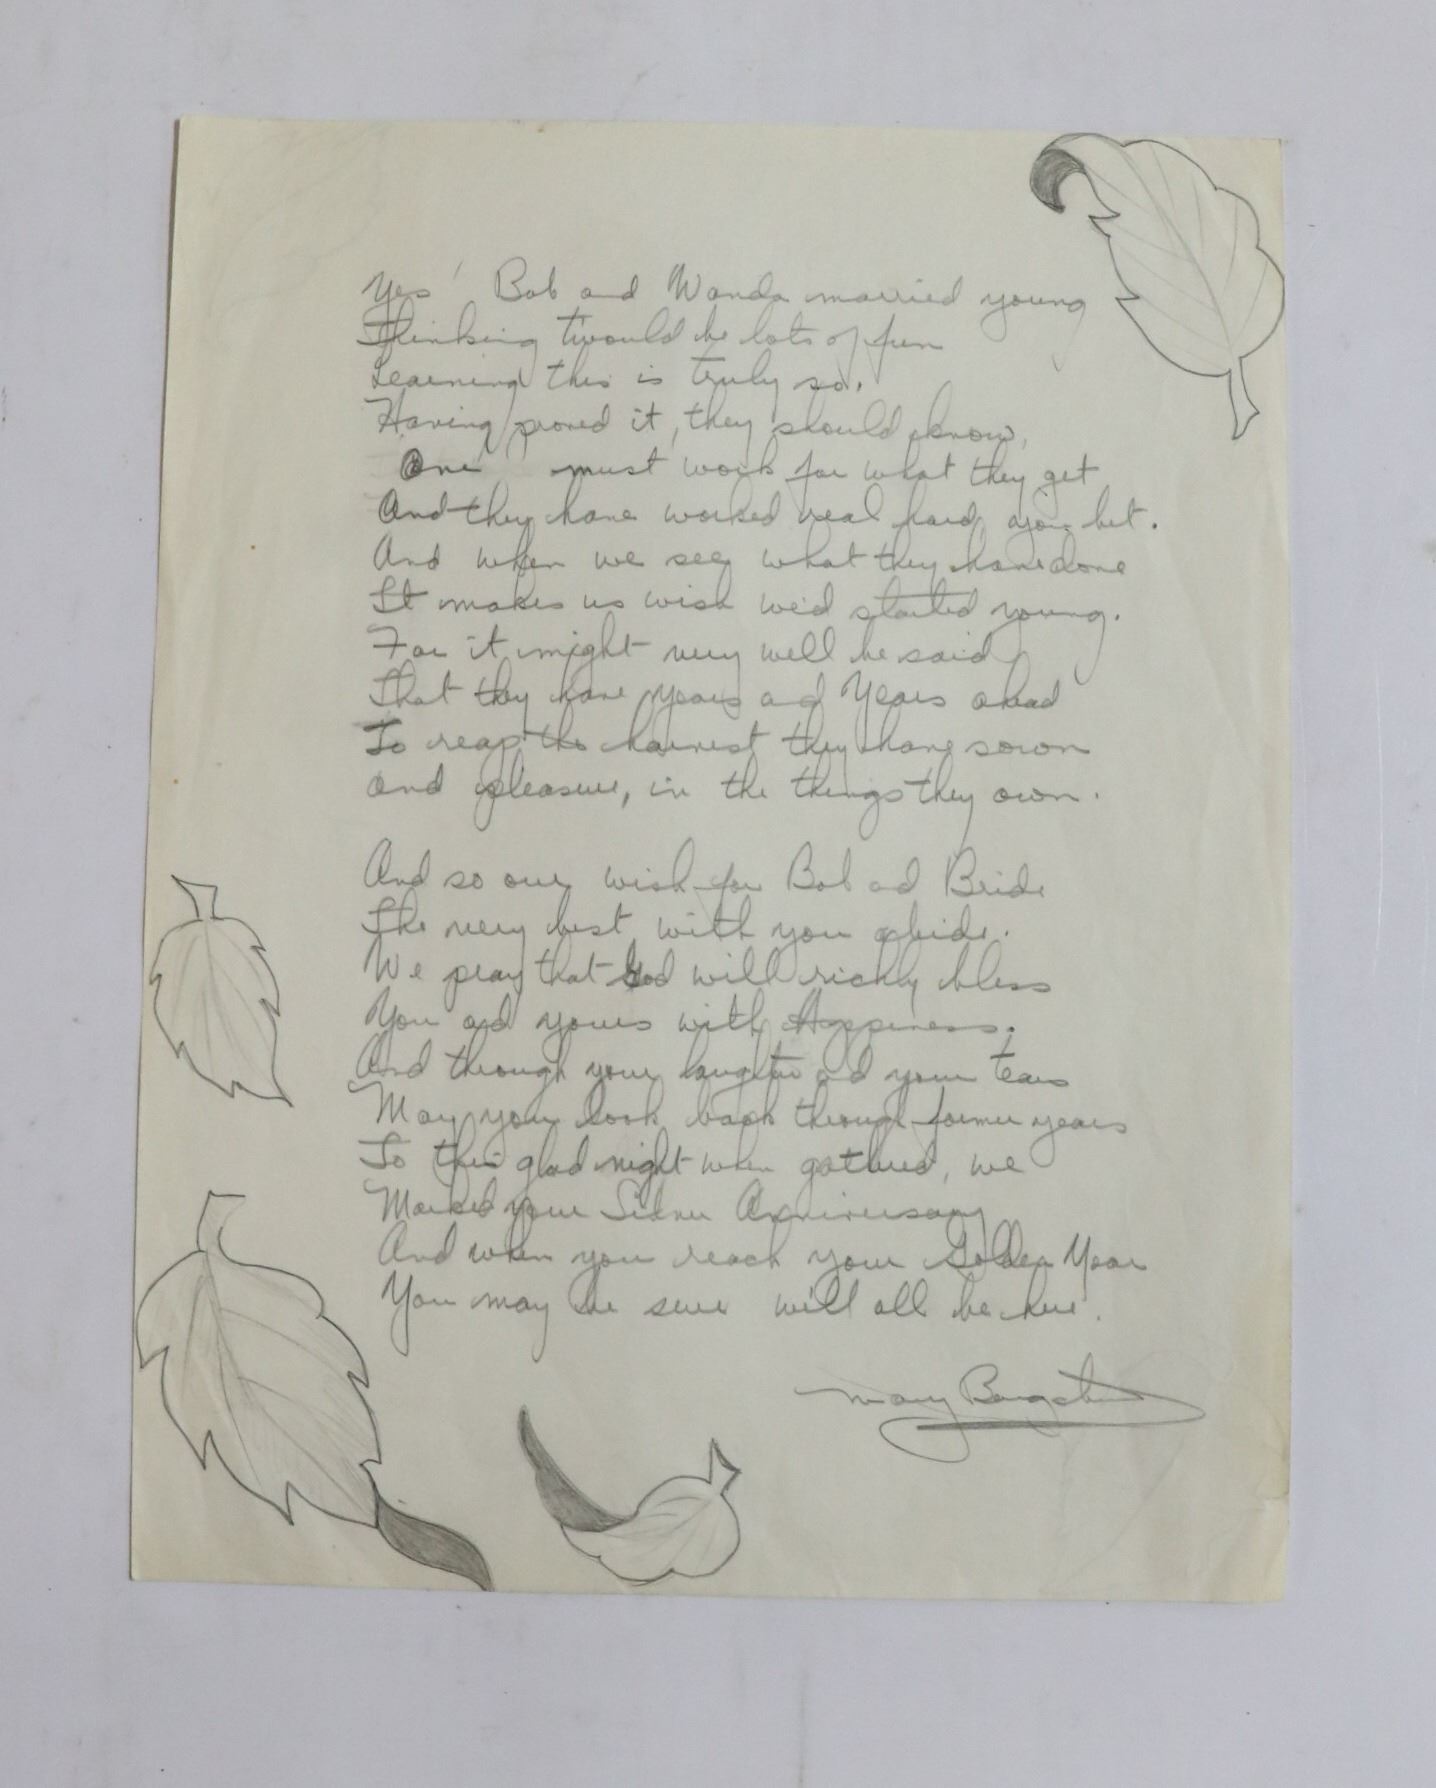 Yes! Bob and Wanda married young
Thinking t'would be lots of fun
Learning this is truly so.
Having proved it, they should know,
One must work for what they get
And they have worked real hard you bet.
And when we see what they have done
It makes us wish we'd started young.
For it might very well be said
That they have years ad Years ahead
To reap the harvest they have sown
and pleasure, in the things they own.
And so our wish for Bob ad Bride
The very best with you abide.
We pray that God will richly bless
You ad yours with Happiness.
And through your laughter ad your tears
May you look back through former years
To this glad night when gathered, we
Marked your Silver Anniversary
And when you reach your Golden Year
You may be sure will all be here.
Mary